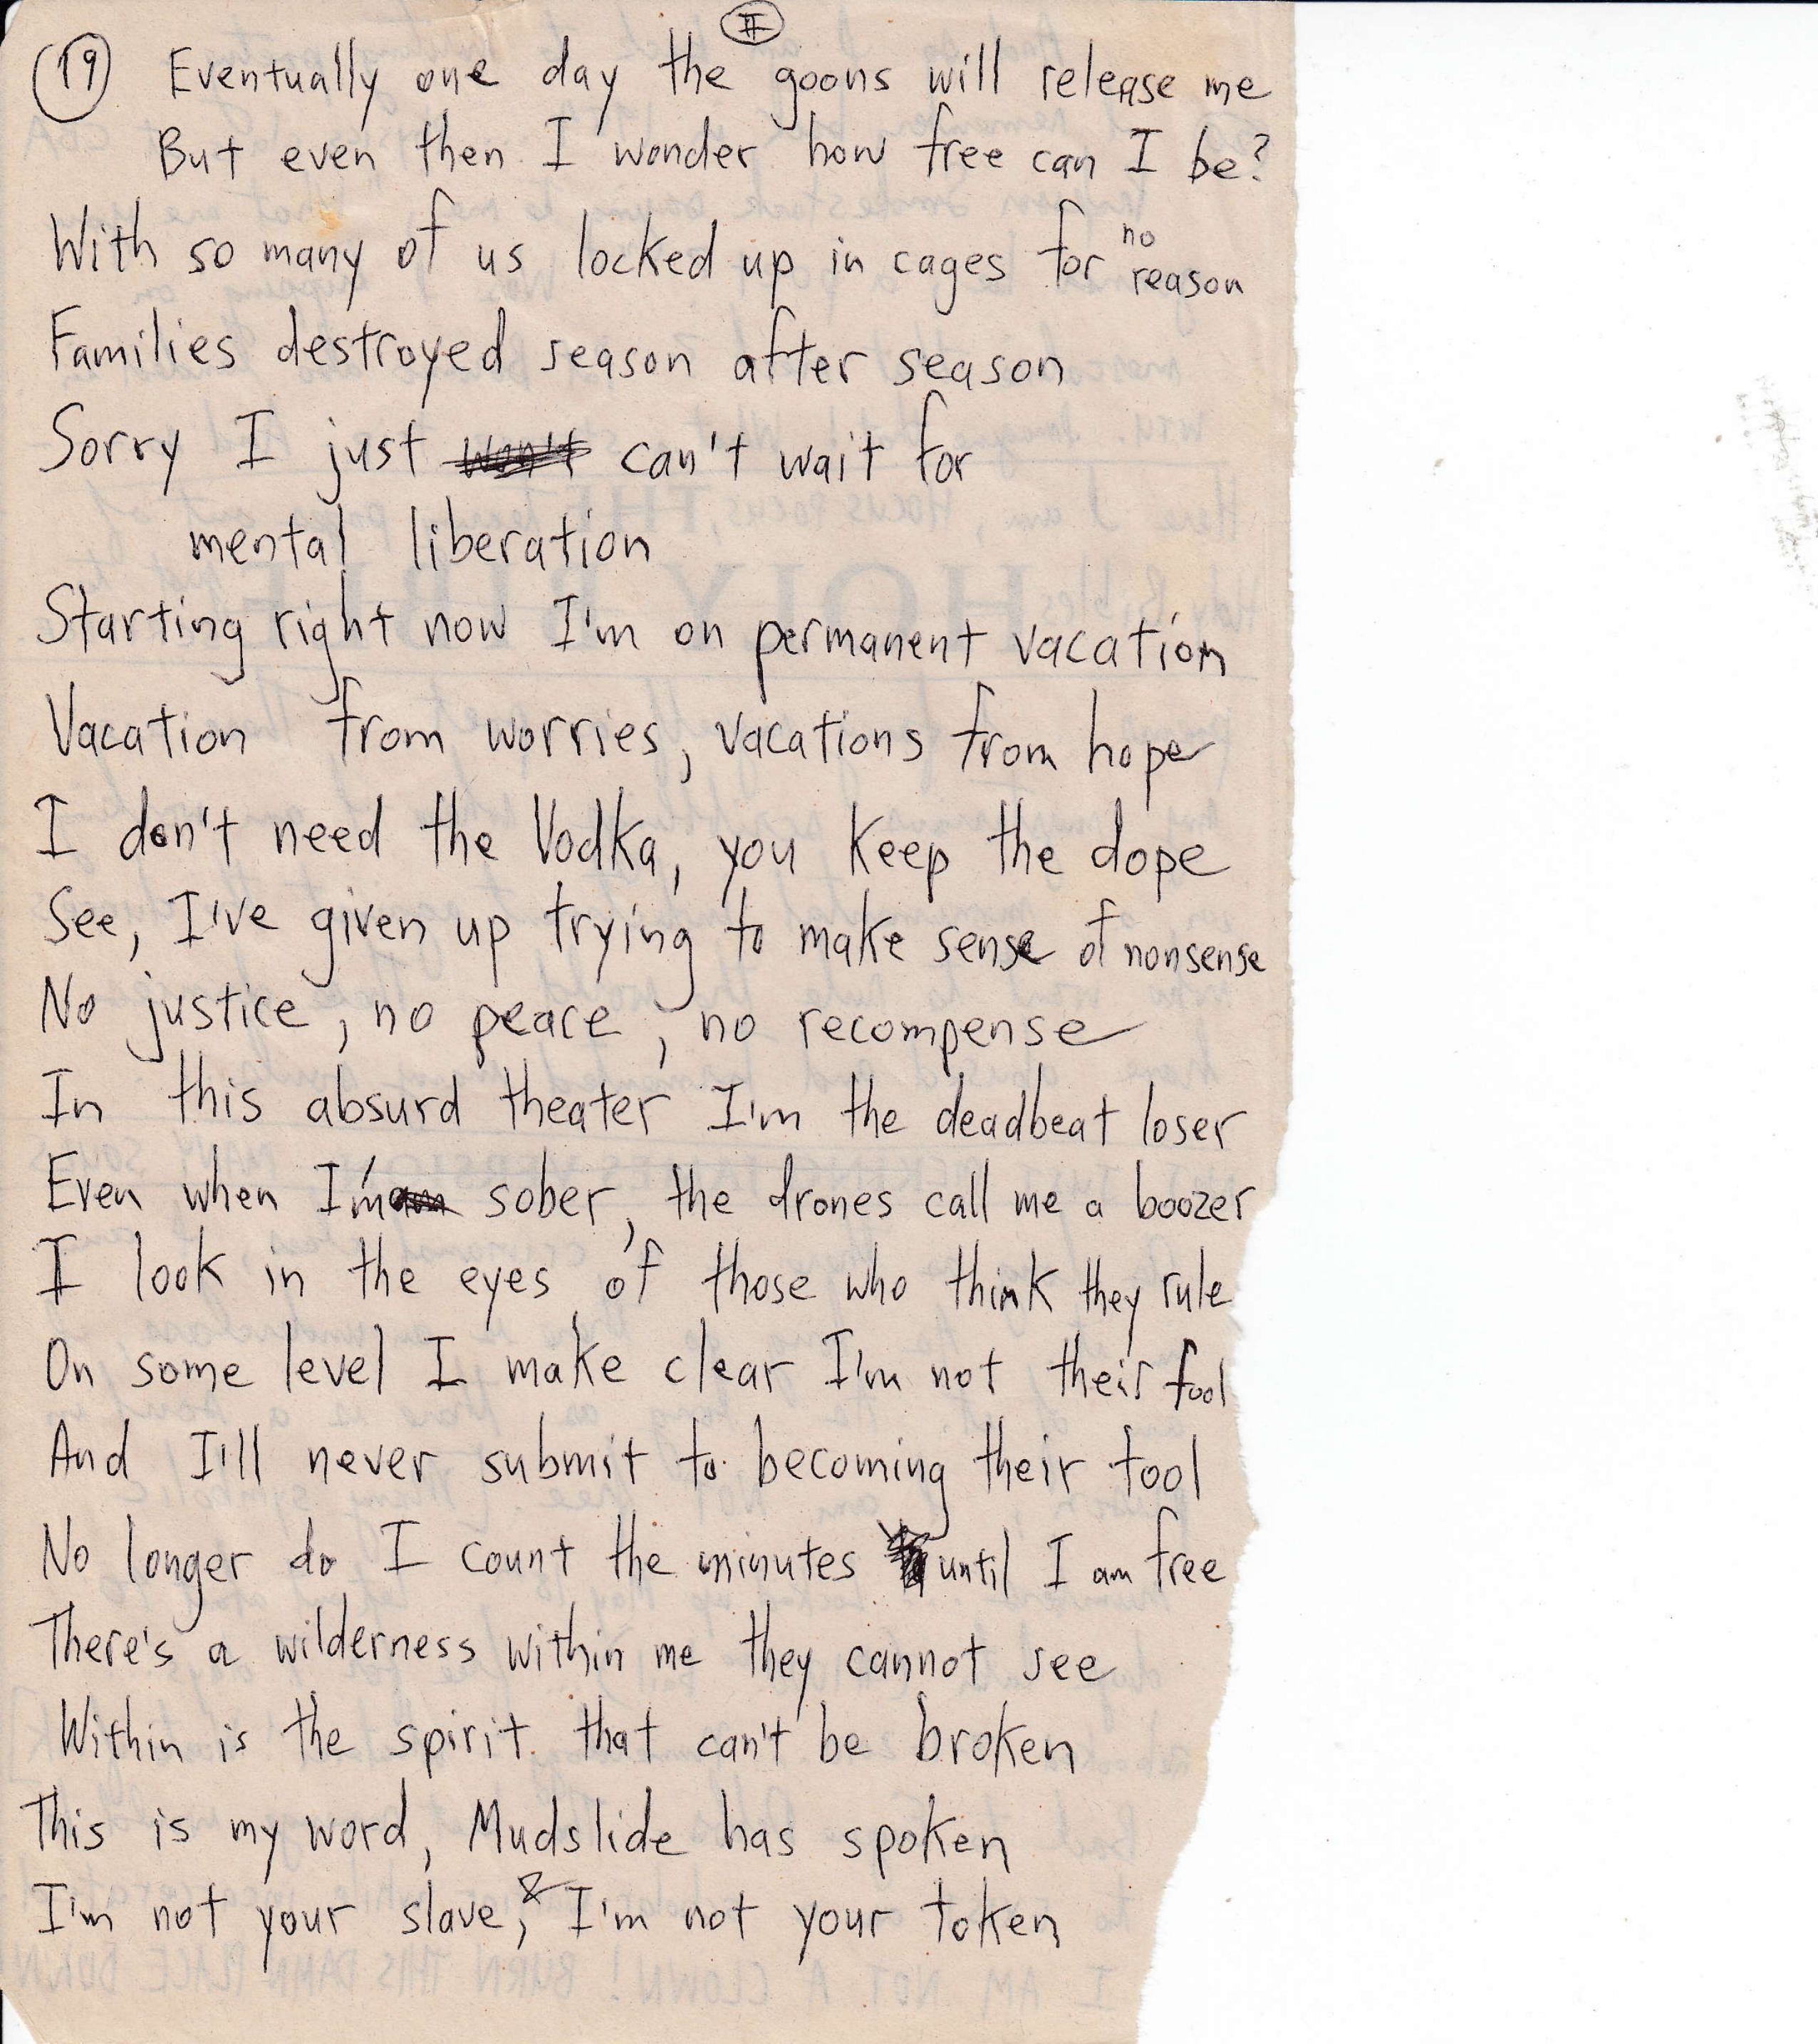 II
19 Eventually one day the goons will release me
But even then I wonder how free can I be?
With so many of us locked up in cages for no reason
Families destroyed season after season
Sorry I just won't can't wait for
mental liberation
Starting right now I'm on permanent vacation
Vacation from worries, vacations from hope
I don't need the Vodka, you keep the dope
See, I've given up trying to make sense of nonsense
No justice, no peace, no recompense
In this absurd theater I'm the deadbeat loser
Even when I'm am sober, the drones call me a boozer
I look in the eyes of those who think they rule
On some level I make clear I'm not their fool
And I'll never submit to becoming their tool
No longer do I count the minutes until I am free
There's a wilderness within me they cannot see
Within is the spirit that can't be broken
This is my word, Mudslide has spoken
I'm not your slave, & I'm not your token
I AM NOT A CLOWN! BURN THIS DAMN PLACE DOWN